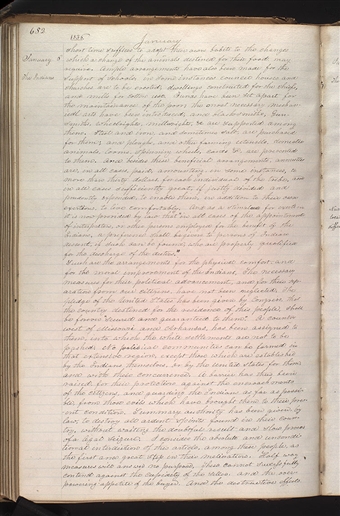 683
1838 January
short time suffice to adapt their own habits to the changes
February 8 which a change of the animals destined for their food may
The Indians require. Ample arrangements have also been made for the
support of Schools, in some instances council houses and
churches are to be erected, dwellings constructed for the chiefs,
and mills for common use. Funds have been set apart for
the maintenance of the poor; the most necessary mechan-
ical arts have been introduced, and blacksmiths, Gun-
smiths, wheelwrights, millwrights, &c are supported among
them. Steel and iron, and sometimes salt, are purchased
for them; and ploughs, and other farming utensils, domestic
animals, looms, spinning wheels, cards, &c are presented
to them. And besides these beneficial arrangements, annuities
are, in all cases, paid, amounting, in some instances, to
more than thirty dollars for each individual of the tribe, and
in all cases sufficiently great, if justly divided and
prudently expended, to enable them, in addition to their own
exertions, to live comfortably. And as a stimulus for exertion
it is now provided by law that "in all cases of the appointment
of interpreters, or other persons employed for the benefit of the
Indians, a preference shall be given to persons of Indian
descent, if such can be found, who are properly qualified
for the discharge of the duties."
Such are the arrangements for the physical comfort, and
for the moral improvement of the Indians. The necessary
measures for their political advancement, and for their sep-
aration from our citizens have not been neglected. The
pledge of the United States has been given by Congress that
the country destined for the residence of this people, shall
be forever "secured and guaranteed to them". A country
west of Missouri and Arkansas has been assigned to
them, into which the white settlements are not to be
pushed. No political communities can be formed in
that extensive region, except those which are established
by the Indians themselves, or by the United States for them
and with their concurrence. A barrier has thus been
raised, for their protection against the encroachments
of the citizens, and guarding the Indians as far as possi-
ble from those evils which have brought them to their pres-
ent condition. Summary authority has been given by
law, to destroy all ardent spirits found in their coun-
try, without waiting the doubtful result and slow process
of a legal seizure. I consider the absolute and uncondi-
tional interdiction of this article, among these people, as
the first and great step in their melioration. Half way
measures will answer no purpose. These cannot successfully
contend against the cupidity of the seller and the over-
powering appetite of the buyer. And the destructive effects